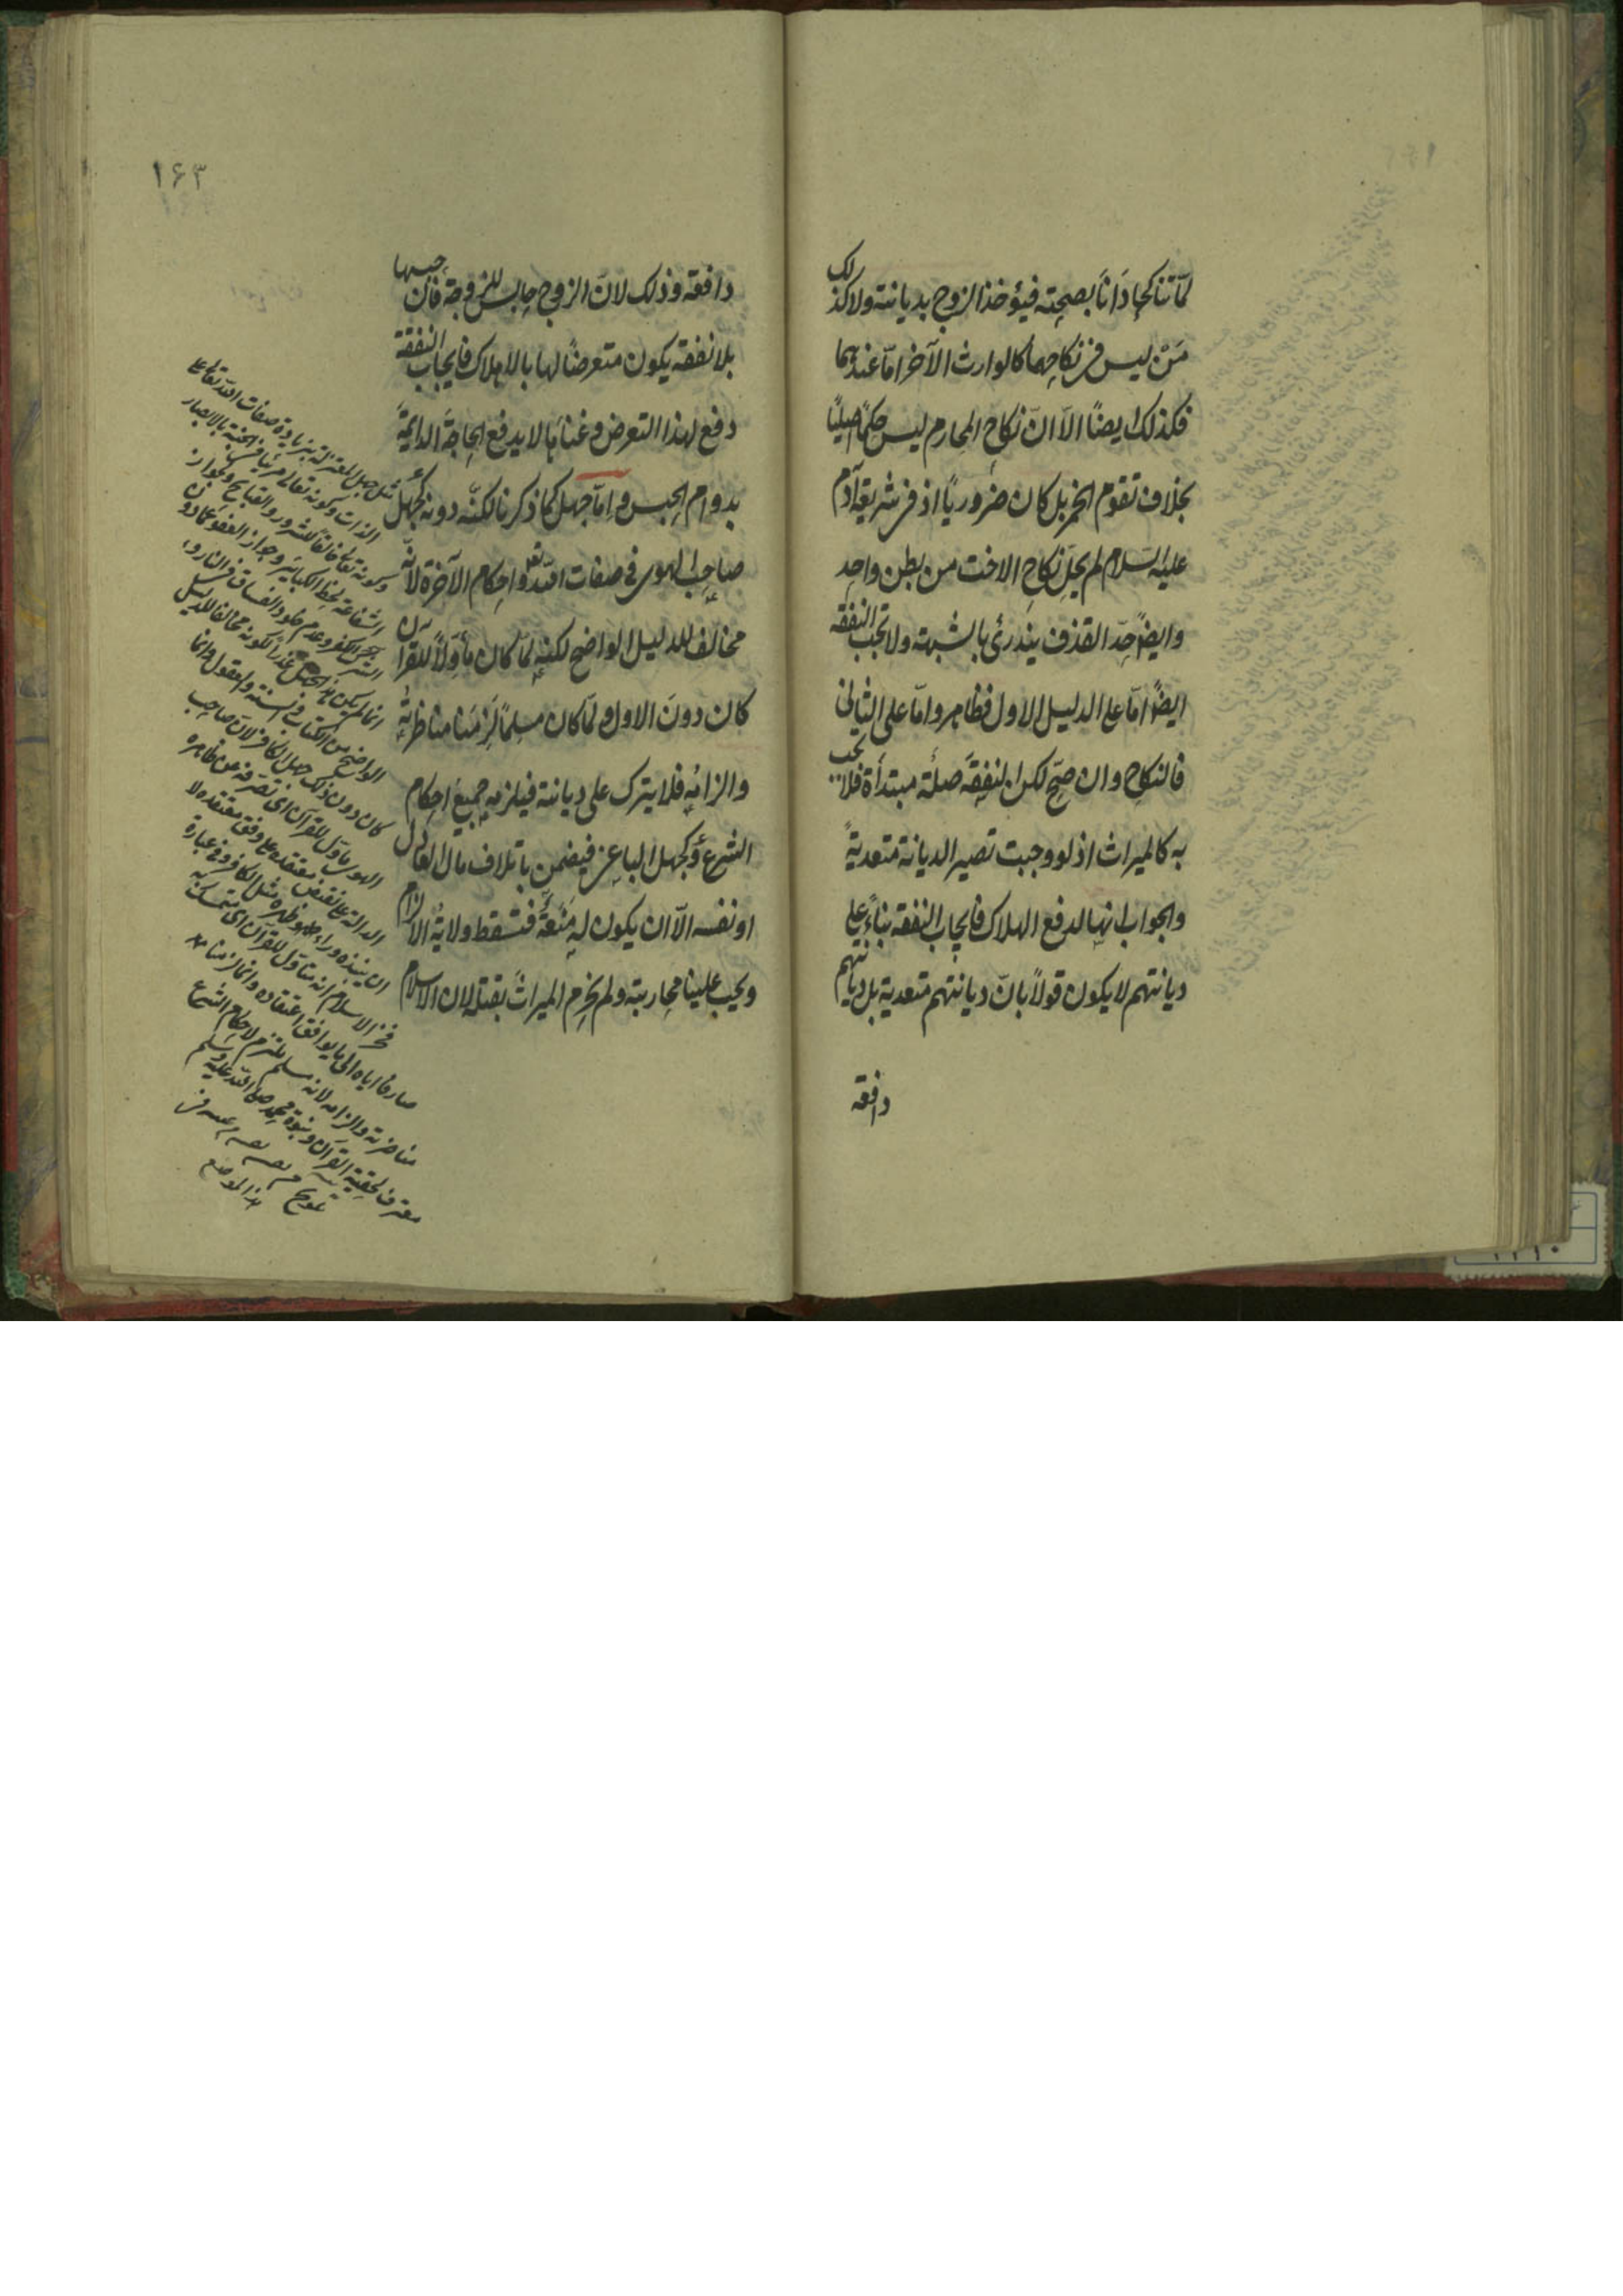 لمّا تناكحا دَانَا بصحته فيؤخذ الزوج بديانته ولا كذلك
مَنْ ليس فى نكاحهما كالوارث الآخر امّا عندهما
فكذلك ايضًا الّا انّ نكاح المحارم ليس حكمًا اصليًا
بخلاف تقوم الخمر بل كان ضروريًا اذ فى شريعة آدم
عليه السّلام لم يحل نكاح الاخت من بطن واحد
وايضًا حدّ القذف يندرئ بالشبهة ولا تجب النفقه
ايضًا امّا على الدليل الاول فظاهر وامّا على الثانى
فالنكاح وان صحّ لكن النفقة صلة مبتدأة فلا تجب
به كالميراث اذ لو وجبت تصير الديانة متعديةً
والجواب انها لدفع الهلاك فايجاب النفقه بناءً على
ديانتهم لا يكون قولًا بانّ ديانتهم متعدية بل ديانتهم
دافعة
١۶٣
دافعة وذلك لانّ الزوج حابس للزوجة فان حبسها
بلا نفقه يكون متعرضًا لها بالاهلاك فايجاب النفقة
دفع لهذا التعرض وغناها لا يدفع الحاجة الدائمة
بدوام الحبس وامّا جهل كما ذكرنا لكنّه دونه كجهل
صاحب الهوى فى صفات اللّه تع واحكام الآخرة لانّه
مخالف للدليل الواضح لكنه لمّا كان مأوّلًا للقرآن
كان دونَ الاول ولمّا كان مسلمًا لَزِمَنا مناظرته
والزامه فلا يترك على ديانته فيلزمه جميعُ احكام
الشرع وكجهل الباغى فيضمن باتلاف مال العادل
او نفسه الّا ان يكون له مَنَعَةٌ فتسقط ولاية الالزام
ويجب علينا محاربته ولم يحرم الميراثَ بقتله لان الاسلام
مثل جهل المعتزلة بزيادة صفات اللّه تعالى على
الذات وكونه تعالى مرئيًا فى الجنة بالابصار
وكونه تعالى خالقًا للشرور والقبائح وبجواز
الشفاعة لحط الكبائر وجواز العفو عمّا دون
الشرك والكفر وعدم خلود الفساق فى النار و
انما لم يكن هذا الجهل عذرًا لكونه مخالفًا للدليل
الواضح من الكتاب والسنة والمعقول وانما
كان دون ذلك جهل الكافر لانّ صاحب
الهوى مأوّل للقرآن اى تصرفه عن ظاهره
الدالة على نقيض معتقده على وفق معتقده لا
ان ينبذه وراء ظهره مثل الكافر وفى عبارة
فخر الاسلام انه متأوّل للقرآن اى متمسك به
صارف اياه الى ما يوافق اعتقاده وانما لزمنا
مناظرته والزامه لانه مسلم ملتزم لاحكام الشرع
معترف بحقية القرآن ونبوة محمد صلى اللّه عليه وسلم
تلويح
هذا الموضع